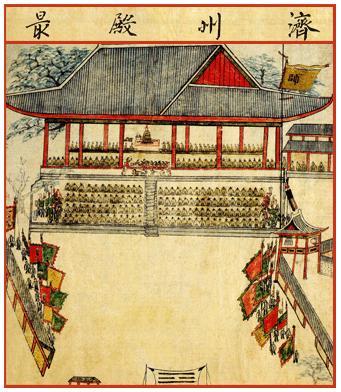 濟州殿最